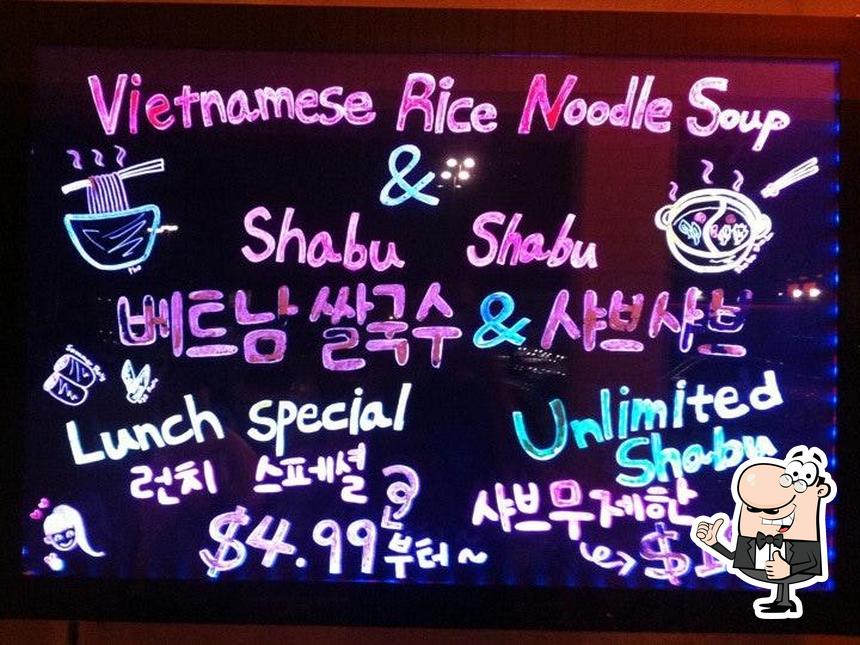 Vietnamese Rice Noodle Soup
&
Shabu Shabu
베트남 쌀국수 & 샤브샤브
Lunch special
런치 스페셜
$4.99 부터~
Unlimited
Shabu
샤브무제한